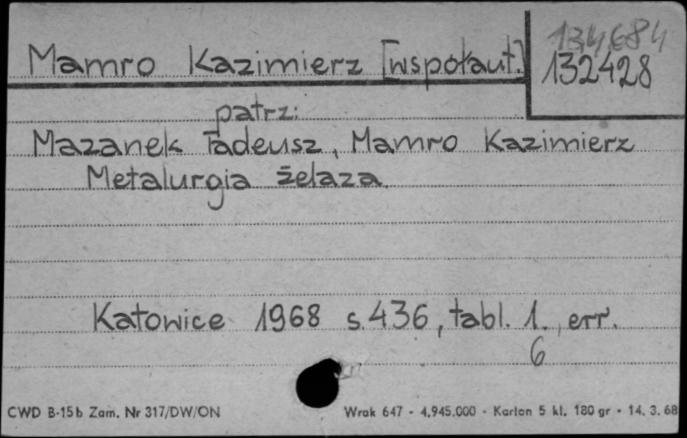 134684
Mamro Kazimierz [współaut.] 132428
patrz:
Mazanek Tadeusz, Mamro Kazimierz
Metalurgia żelaza.
Katowice 1968 s. 436, tabl. 1., err.
6
CWD B-15b Zam. Nr 317/DW/ON Wrak 647 - 4.945.000 - Karton 5 kl. 180 gr - 14. 3. 68